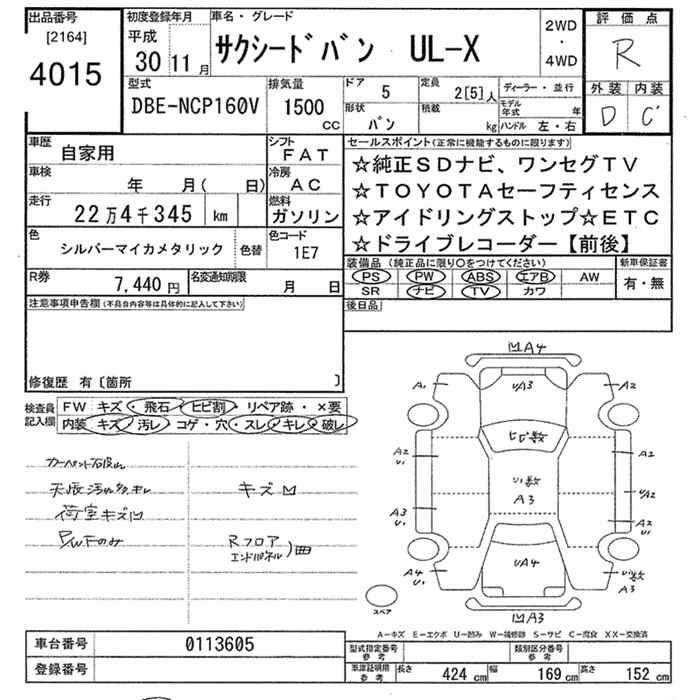 出品番号
[2164]
4015
初度登録年月
平成
30 11 月
車名・グレード
サクシードバン UL-X
2WD
・
4WD
評価点
R
外装 内装
D C
型式
DBE-NCP160V
排気量
1500
cc
ドア 5
形状 バン
定員 2[5]人
積載 kg
ディーラー・並行
モデル年式 年
ハンドル 左・右
車歴 自家用
シフト FAT
車検 年 月( 日)
冷房 AC
走行 22万4千345 km
燃料 ガソリン
色 シルバーマイカメタリック 色替
色コード 1E7
R券 7,440円
名変通知期限 月 日
セールスポイント(正常に機能するものに限ります)
☆純正SDナビ、ワンセグTV
☆TOYOTAセーフティセンス
☆アイドリングストップ☆ETC
☆ドライブレコーダー【前後】
装備品 (純正品に限り○をつけてください)
PS PW ABS エアB AW
SR ナビ TV カワ
新車保証書
有・無
後日品
注意事項申告欄(不具合内容等は具体的に記入して下さい)
修復歴 有〔箇所 〕
検査員
記入欄
FW キズ・飛石・ヒビ割・リペア跡・×要
内装 キズ・汚レ・コゲ・穴・スレ・キレ・破レ
天張汚れ多キレ
荷室キズ凹
P/WFのみ
キズ凹
Rフロア
エンドパネル
凹A4
A1
UA3
A2
ヒビ数
A2
U1
U1数
A3
UA2
A3
U1
A2
U1
A4
U1
UA4
U1数
A3
凹A3
スペア
A-キズ E-エクボ U-凹み W-補修跡 S-サビ C-腐食 XX-交換済
車台番号 0113605
登録番号
型式指定番号
参考
類別区分番号
参考
車庫証明用
参考
長さ 424 cm 幅 169 cm 高さ 152 cm